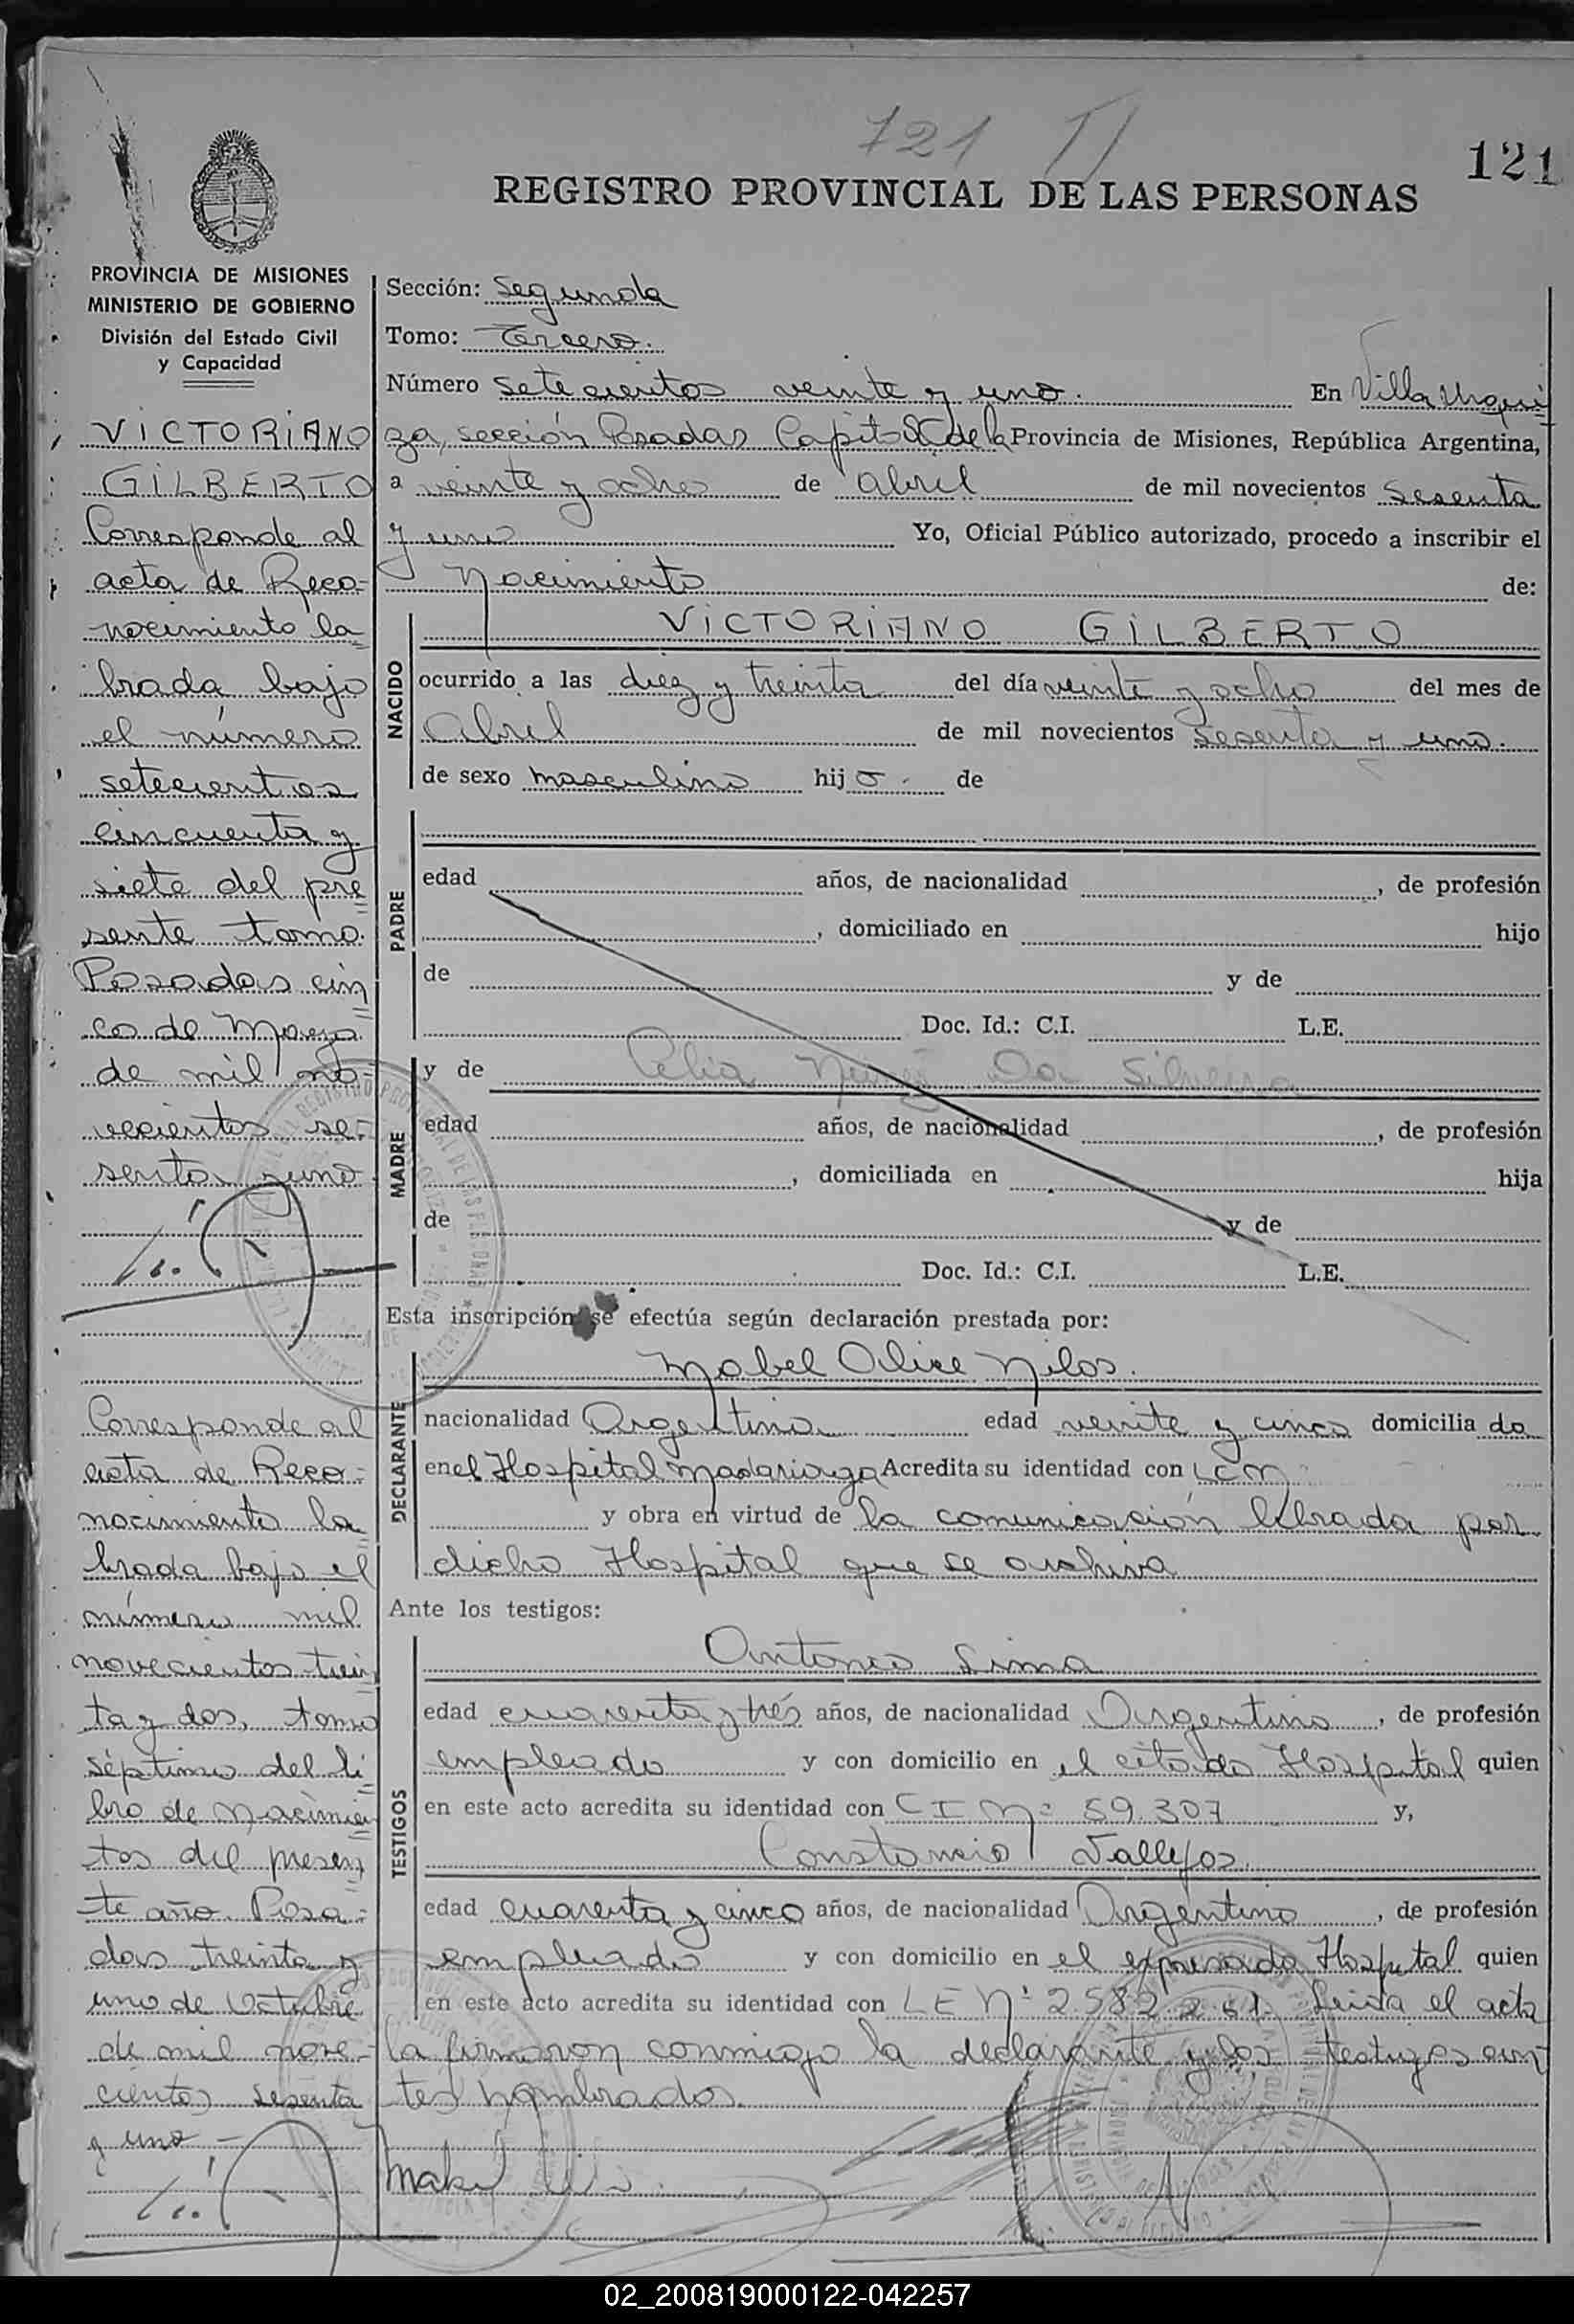 721
121
REGISTRO PROVINCIAL DE LAS PERSONAS
PROVINCIA DE MISIONES
MINISTERIO DE GOBIERNO
División del Estado Civil
y Capacidad
VICTORIANO
GILBERTO
Corresponde al
acta de Reco-
nocimiento la
brada bajo
el número
setecientos
cincuenta y
siete del pre
sente tomo.
Posadas cin
co de Mayo
de mil no-
vecientos se-
senta y uno
Corresponde al
acta de Reco-
nocimiento la
brada bajo el
número mil
novecientos trein
ta y dos, tomo
séptimo del li
bro de Nacimien
tos del presen
te año. Posa-
das treinta y
uno de Octubre
de mil nove-
cientos sesenta
y uno -
Sección: Segunda
Tomo: Tercero.
Número setecientos veinte y uno. En Villa Urqui
za, sección Posadas Capital de la Provincia de Misiones, República Argentina,
a veinte y ocho de abril de mil novecientos sesenta
y uno Yo, Oficial Público autorizado, procedo a inscribir el
Nacimiento de:
NACIDO
VICTORIANO GILBERTO
ocurrido a las diez y treinta del día veinte y ocho del mes de
Abril de mil novecientos sesenta y uno.
de sexo masculino hijo de
PADRE
edad años, de nacionalidad , de profesión
, domiciliado en hijo
de y de
Doc. Id.: C.I. L.E.
MADRE
y de Celia Da Silveira
edad años, de nacionalidad , de profesión
, domiciliada en hija
de y de
Doc. Id.: C.I. L.E.
Esta inscripción se efectúa según declaración prestada por:
DECLARANTE
Mabel Alice Nilos.
nacionalidad Argentina edad veinte y cinco domiciliada
en el Hospital Madariaga Acredita su identidad con
y obra en virtud de la comunicación librada por
dicho Hospital que se archiva
Ante los testigos:
TESTIGOS
Antonio Lima
edad cuarenta y trés años, de nacionalidad Argentino, de profesión
empleado y con domicilio en el citado Hospital quien
en este acto acredita su identidad con C I Nº 59.307 y,
Constancio Vallejos
edad cuarenta y cinco años, de nacionalidad Argentino, de profesión
empleado y con domicilio en el expresado Hospital quien
en este acto acredita su identidad con L E Nº 2.582.261. Leida el acta
la firmaron conmigo la declarante y los testigos an
tes nombrados.
02_200819000122-042257